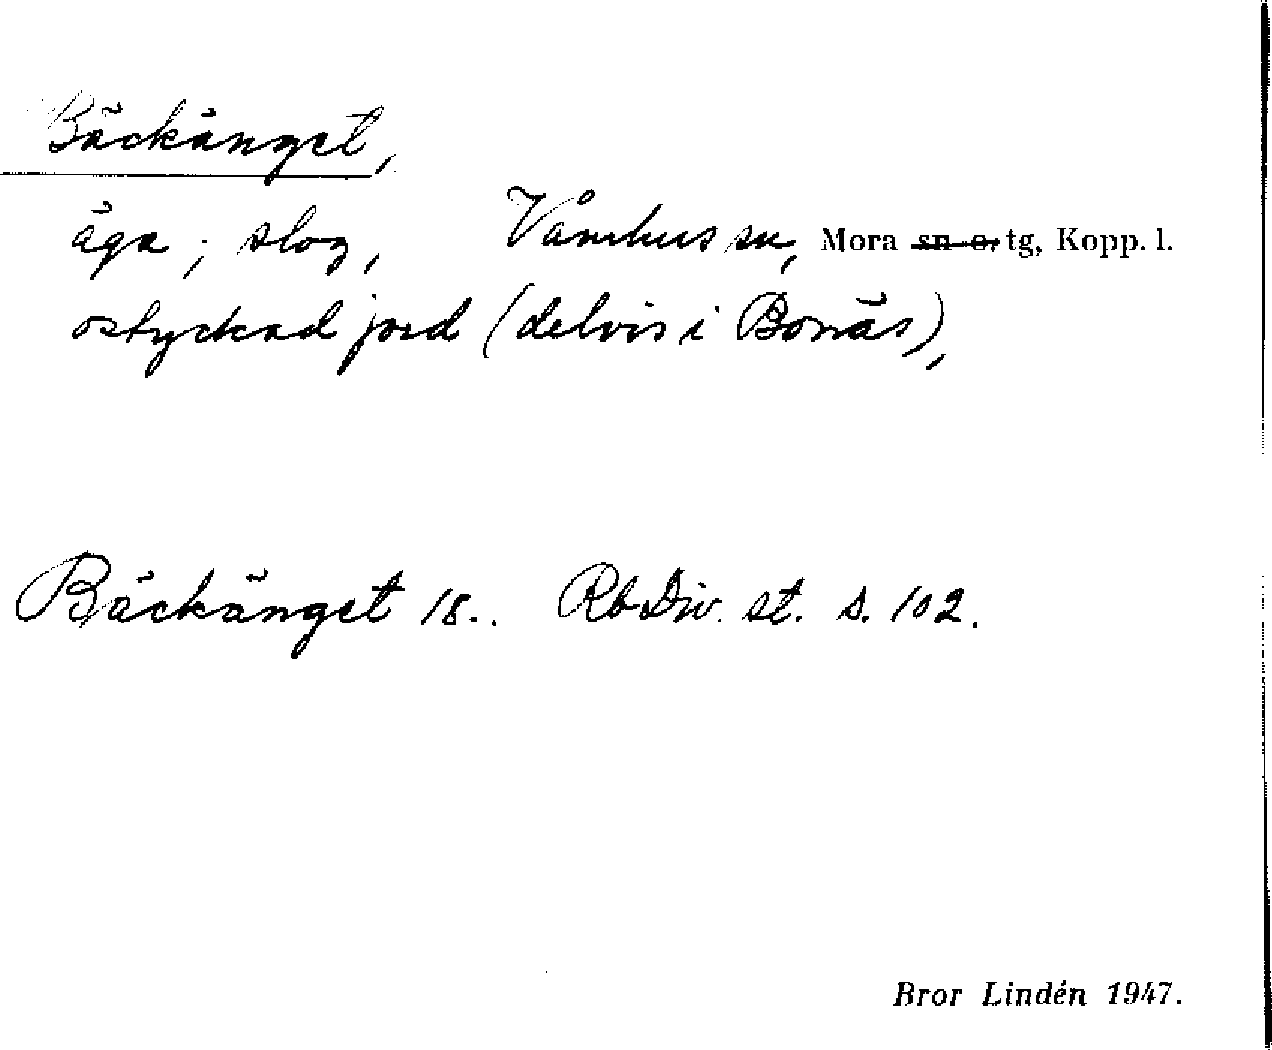 Bäckänget,
äga; slog, Våmhus sn, Mora sn o. tg, Kopp. l.
ostyckad jord (delvis i Bonäs),
Bäckänget 18.. Rb Div. st. s. 102.
Bror Lindén 1947.